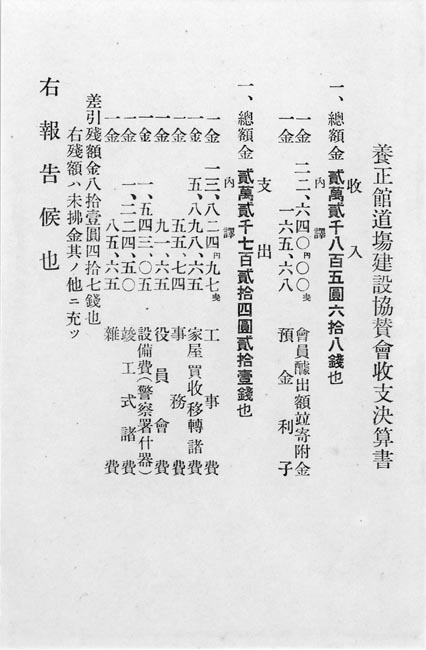 養正館道場建設協賛會收支決算書
收入
一、總額金 貳萬貳千八百五圓六拾八錢也
內譯
一金 二二、六四〇円〇〇戋 會員醵出額竝寄附金
一金 一六五、六八 預金利子
支出
一、總額金 貳萬貳千七百貳拾四圓貳拾壹錢也
內譯
一金 一三、八二四円九七戋 工事費
一金 五、八九八、六五 家屋買收移轉諸費
一金 五五、七四 事務費
一金 九一、六五 役員會費
一金 一、五四三、〇五 設備費(警察署什器)
一金 一、二二四、五〇 竣工式諸費
一金 八五、六五 雜費
差引殘額金八拾壹圓四拾七錢也
右殘額ハ未拂金其ノ他ニ充ツ
右報告候也